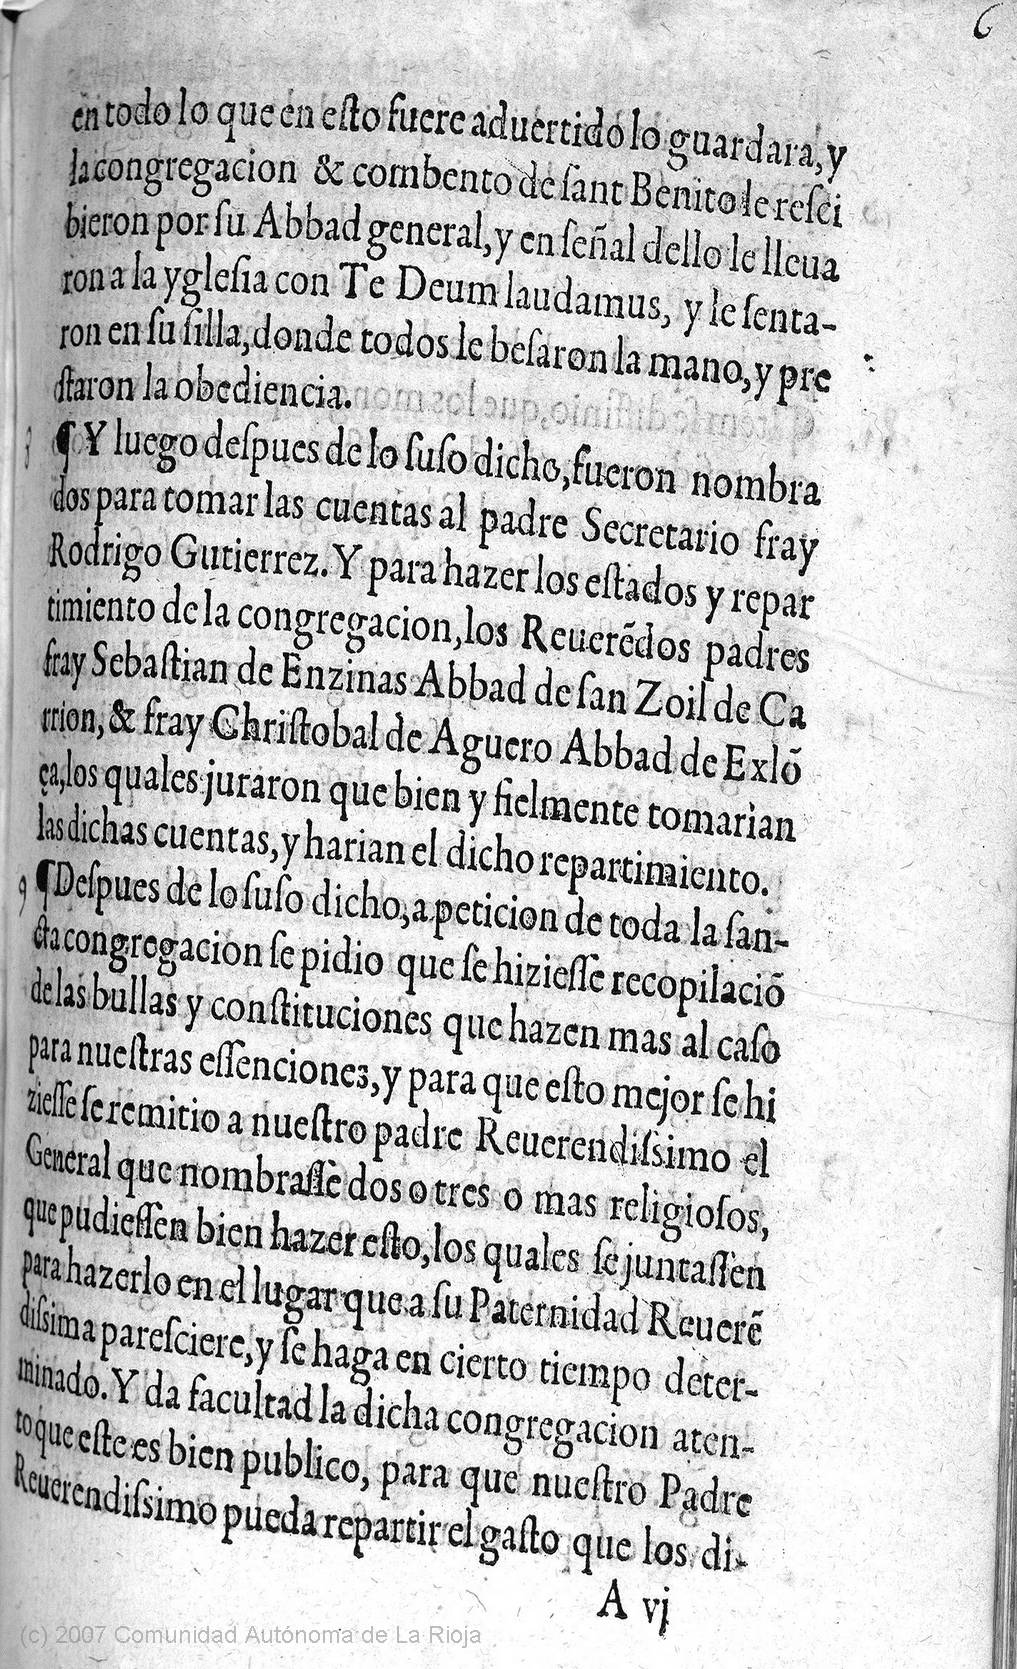 6
en todo lo que en eſto fuere aduertido lo guardara, y
la congregacion & combento de ſant Benito le reſci
bieron por ſu Abbad general, y en ſeñal dello le lleua
ron a la ygleſia con Te Deum laudamus, y le ſenta-
ron en ſu ſilla, donde todos le beſaron la mano, y pre
ſtaron la obediencia.
8 ¶ Y luego deſpues de lo ſuſo dicho, fueron nombra
dos para tomar las cuentas al padre Secretario fray
Rodrigo Gutierrez. Y para hazer los eſtados y repar
timiento de la congregacion, los Reuerẽdos padres
fray Sebaſtian de Enzinas Abbad de ſan Zoil de Ca
rrion, & fray Chriſtobal de Aguero Abbad de Exlõ
ça, los quales juraron que bien y fielmente tomarian
las dichas cuentas, y harian el dicho repartimiento.
9 ¶ Deſpues de lo ſuſo dicho, a peticion de toda la ſan-
cta congregacion ſe pidio que ſe hizieſſe recopilaciõ
de las bullas y conſtituciones que hazen mas al caſo
para nueſtras eſſenciones, y para que eſto mejor ſe hi
zieſſe ſe remitio a nueſtro padre Reuerendiſsimo el
General que nombraſſe dos o tres o mas religioſos,
que pudieſſen bien hazer eſto, los quales ſe juntaſſen
para hazerlo en el lugar que a ſu Paternidad Reuerẽ
diſsima pareſciere, y ſe haga en cierto tiempo deter-
minado. Y da facultad la dicha congregacion aten-
to que eſte es bien publico, para que nueſtro Padre
Reuerendiſsimo pueda repartir el gaſto que los di-
A vj
(c) 2007 Comunidad Autónoma de La Rioja